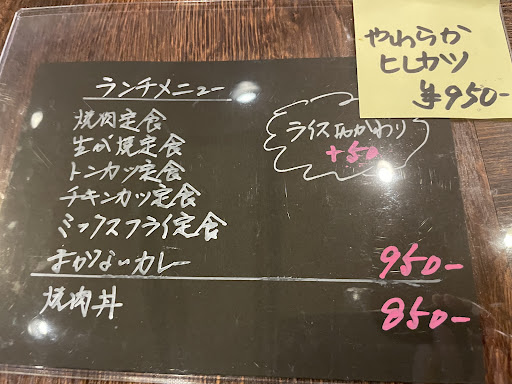 やわらか
ヒレカツ
¥950-
ランチメニュー
焼肉定食
生が焼定食
トンカツ定食
チキンカツ定食
ミックスフライ定食
まかないカレー 950-
焼肉丼 850-
ライスおかわり
+50